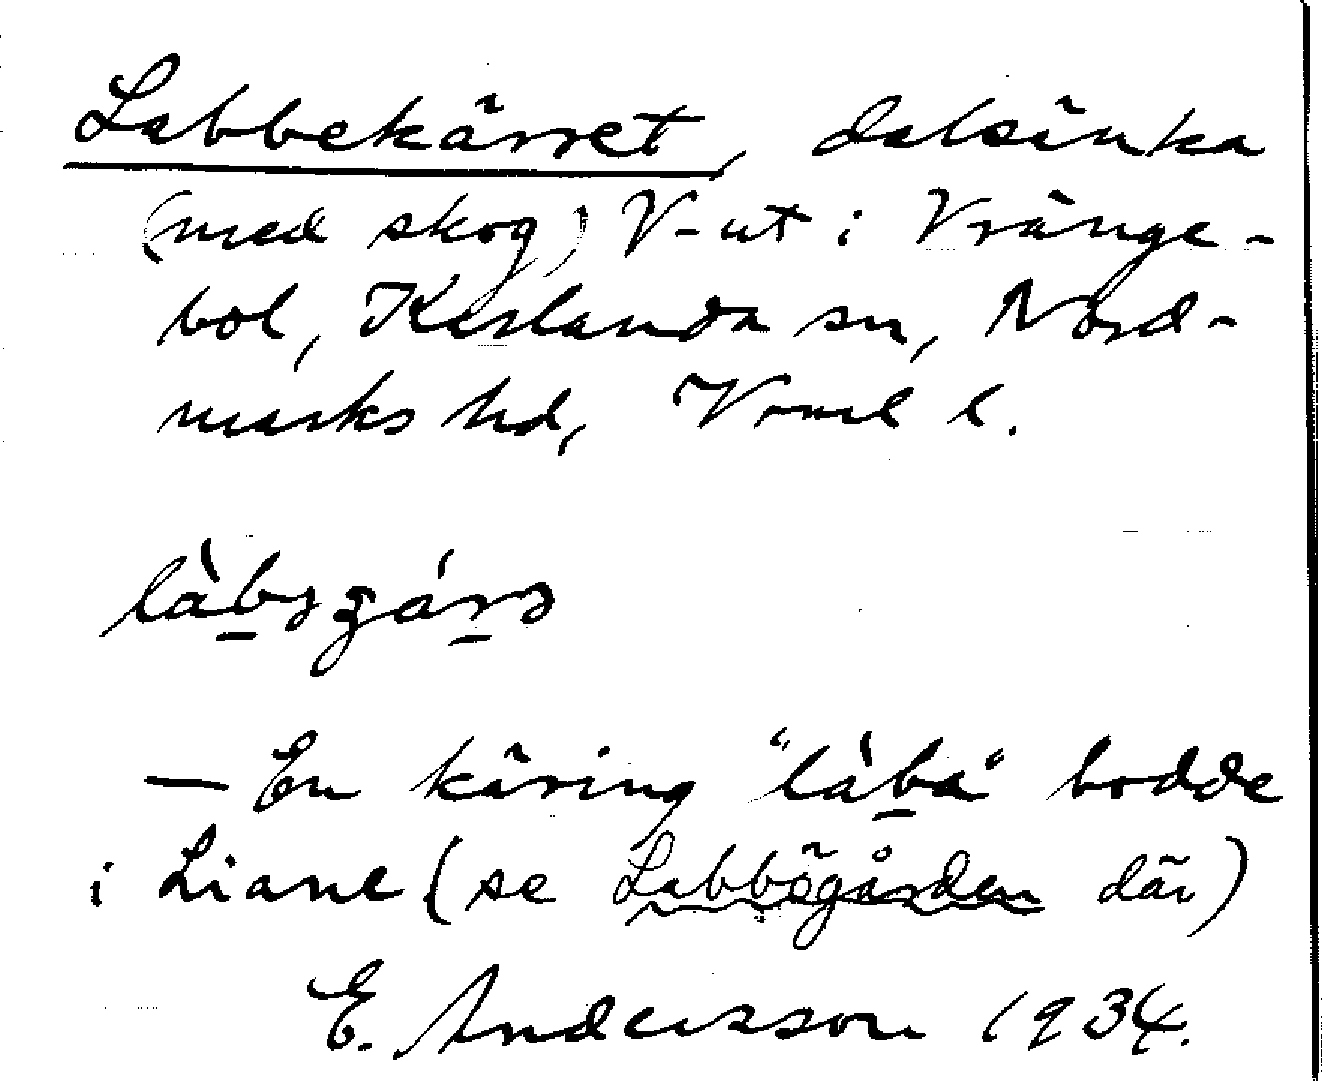 Labbekärret, dalsänka
(med skog) V-ut i Vränge-
bol, Karlanda sn, Nord-
marks hd, Vrml l.
— En käring "làba" bodde
i Liane (se Labbögården där)
E. Andersson 1934.